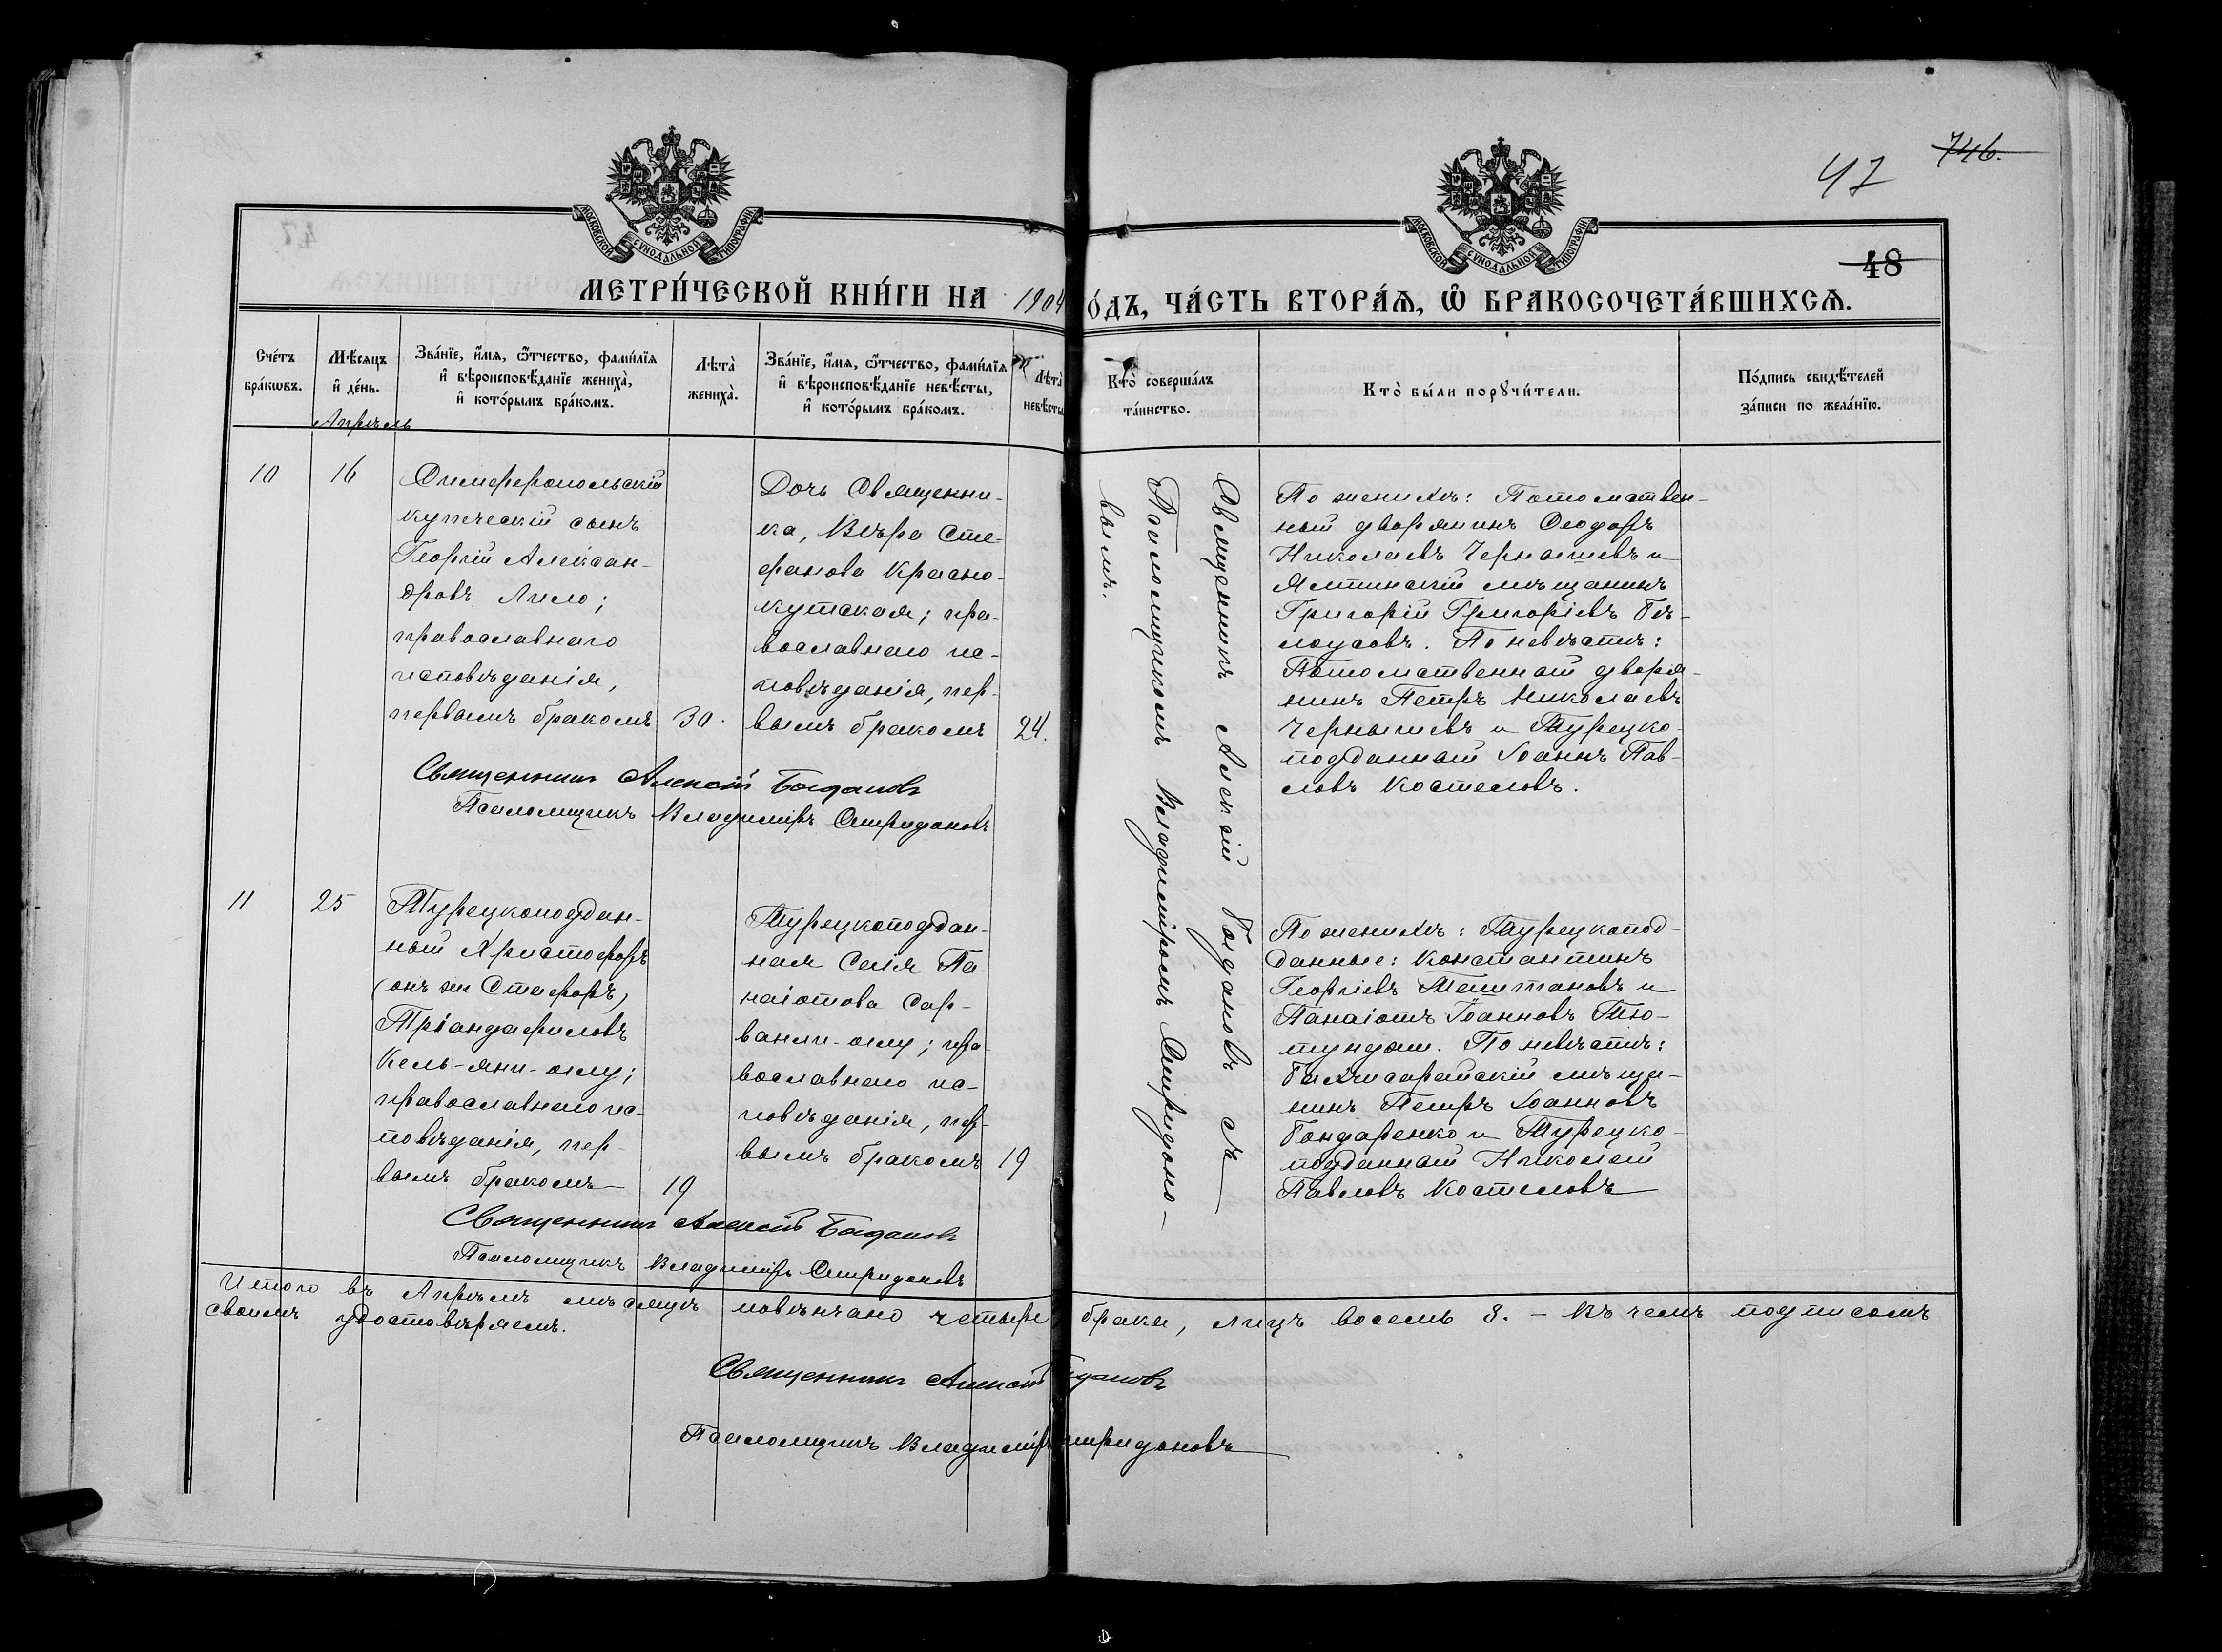 47 746.
48
МОСКОВСКОЙ СѴНОДАЛЬНОЙ ТИПОГРАФІИ
МОСКОВСКОЙ СѴНОДАЛЬНОЙ ТИПОГРАФІИ
МЕТРИ́ЧЕСКОЙ КНИ́ГИ НА 1904
О́ДЪ, ЧА́СТЬ ВТОРА́Ѧ, Ѿ БРАКОСОЧЕТА́ВШИХСѦ.
Сче́тъ
бра́кѡвъ.
Мѣ́сяцъ
и҆ де́нь.
Зва́нїе, и҆́мя, ѻ҆́тчество, фами́лїя
и҆ вѣроисповѣ́данїе жениха̀,
и҆ кото́рымъ бра́комъ.
Лѣта̀
жениха̀.
Зва́нїе, и҆́мя, ѻ҆́тчество, фами́лїя
и҆ вѣроисповѣ́данїе невѣ́сты,
и҆ кото́рымъ бра́комъ.
Лѣта̀
невѣ́сты
Кто̀ соверша́лъ
та́инство.
Кто̀ бы́ли порꙋчи́тели.
По́дпись свидѣ́телей
за́писи по жела́нїю.
Апрѣль
10
16
Симферопольскій
купческій сынъ
Георгій Алексан-
дровъ Лило;
православнаго
исповѣданія,
первымъ бракомъ
30.
Дочь Священни-
ка, Вѣра Сте-
фанова Красно-
кутская; пра-
вославнаго ис-
повѣданія, пер-
вымъ бракомъ
24.
Священникъ Алексій Богдановъ
Псаломщикъ Владиміръ Спиридоновъ
Священникъ Алексій Богдановъ съ
Псаломщикомъ Владиміромъ Спиридоно-
вымъ.
По женихѣ: Потомствен-
ный дворянинъ Ѳеодоръ
Николаевъ Чернышевъ и
Ялтинскій мѣщанинъ
Григорій Григоріевъ Бѣ-
лоусовъ. По невѣстѣ:
Потомственный дворя-
нинъ Петръ Николаевъ
Чернышевъ и Турецко-
подданный Іоаннъ Пав-
ловъ Костеловъ.
11
25
Турецкоподдан-
ный Христофоръ
(онъ же Стефоръ)
Тріандафиловъ
Кель-яни-оглу;
православнаго ис-
повѣданія, пер-
вымъ бракомъ
19
Турецкоподдан-
ная Сѳія Па-
наіотова Сар-
ванли-оглу; пра-
вославнаго ис-
повѣданія, пер-
вымъ бракомъ
19
Священникъ Алексій Богдановъ
Псаломщикъ Владиміръ Спиридоновъ
По женихѣ: Турецкопод-
данные: Константинъ
Георгіевъ и
Панаіотъ Іоанновъ Тю-
тунджи. По невѣстѣ:
Бахчисарайскій мѣща-
нинъ Петръ Іоанновъ
Бондаренко и Турецко-
подданный Николай
Павловъ Костеловъ
Итого въ Апрѣлѣ мѣсяцѣ повѣнчано четыре брака, лицъ восемь 8. – Въ чемъ подписомъ
своимъ удостовѣряемъ.
Священникъ Алексій Богдановъ
Псаломщикъ Владиміръ Спиридоновъ